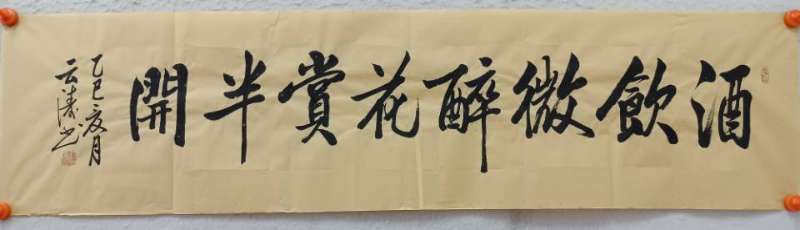 酒飲微醉花賞半開
乙巳夏月
云涛书